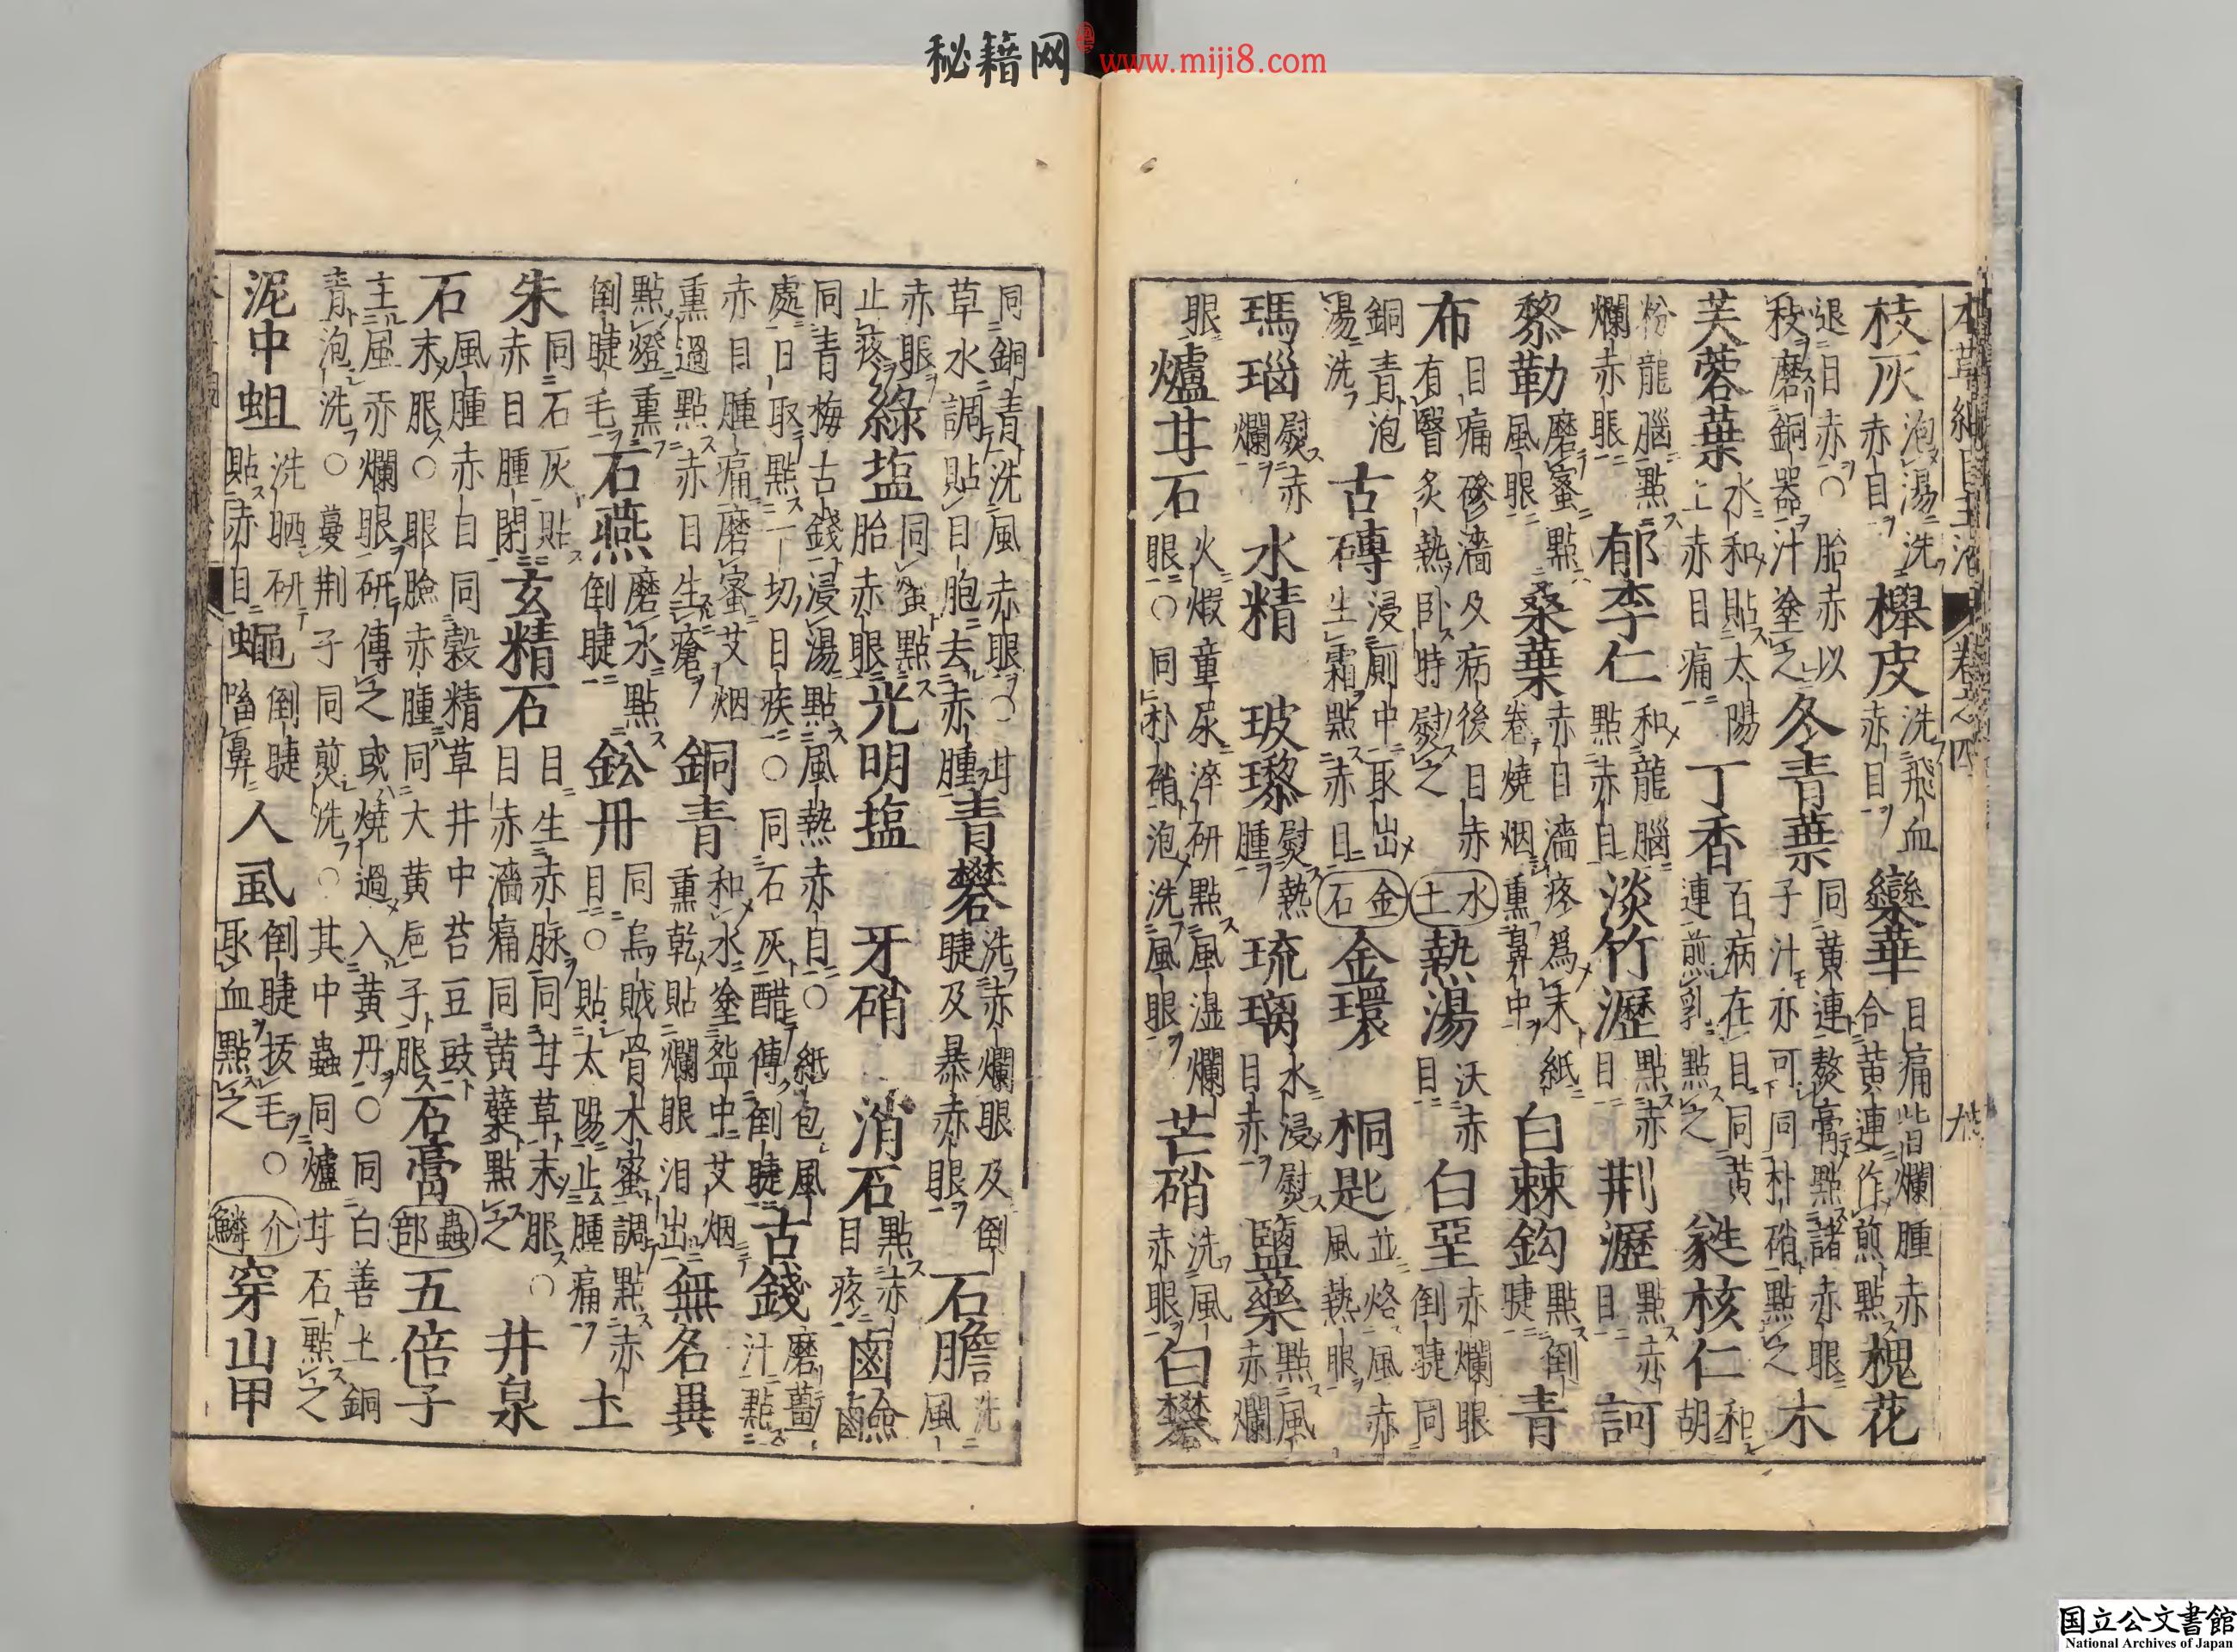 秘籍网 www.miji8.com
本草綱目主治 卷之四
枝灰泡湯洗赤目櫸皮洗飛血赤目欒華目痛眥爛腫赤合黃連作煎點槐花
退目赤○胎赤以秋磨銅器汁塗之冬青葉同黃連熬膏點諸赤眼子汁亦可同朴硝點之木
芙蓉葉水和貼太陽止赤目痛丁香百病在目同黃連煎乳點之蕤核仁和胡
粉龍腦點爛赤眼郁李仁和龍腦點赤目淡竹瀝點赤目荊瀝點赤目訶
黎勒磨蜜點風眼桑葉赤目濇疼爲末紙卷燒烟熏鼻中白棘鈎點倒睫青
布目痛磣濇及病後目赤有翳炙熱臥時熨之水土熱湯沃赤目白堊赤爛眼倒睫同
銅青泡湯洗古磚浸廁中取出生霜點赤目金石金環 桐匙並烙風赤風熱眼
瑪瑙熨赤爛水精 玻瓈熨熱腫琉璃水浸熨目赤鹽藥點風赤爛
眼爐甘石火煅童尿淬研點風濕爛眼○同朴硝泡洗風眼芒硝洗風赤眼白礬
同銅青洗風赤眼○甘草水調貼目胞去赤腫青礬洗赤爛眼及倒睫及暴赤眼石膽洗風
赤眼止疼綠塩同蜜點胎赤眼光明塩 牙硝 消石點赤目疼鹵鹼
同青梅古錢浸湯點風熱赤目○紙包風處日取點一切目疾○同石灰醋傅倒睫古錢磨薑汁點
赤目腫痛磨蜜艾烟熏過點赤目生瘡銅青和水塗盌中艾烟熏乾貼爛眼泪出無名異
點燈熏倒睫毛石燕磨水點倒睫鈆丹同烏賊骨木蜜調點赤目○貼太陽止腫痛土
朱同石灰貼赤目腫閉玄精石目生赤脉同甘草末服○目赤濇痛同黃蘗點之井泉
石風腫赤目同穀精草井中苔豆豉末服○眼瞼赤腫同大黃巵子服石膏蟲部五倍子
主風赤爛眼研傅之或燒過入黃丹○同白善土銅青泡洗○蔓荊子同煎洗○其中蟲同爐甘石點之
泥中蛆洗晒研貼赤目蠅倒睫㗜鼻人虱倒睫拔毛取血點之○介鱗穿山甲
国立公文書館
National Archives of Japan